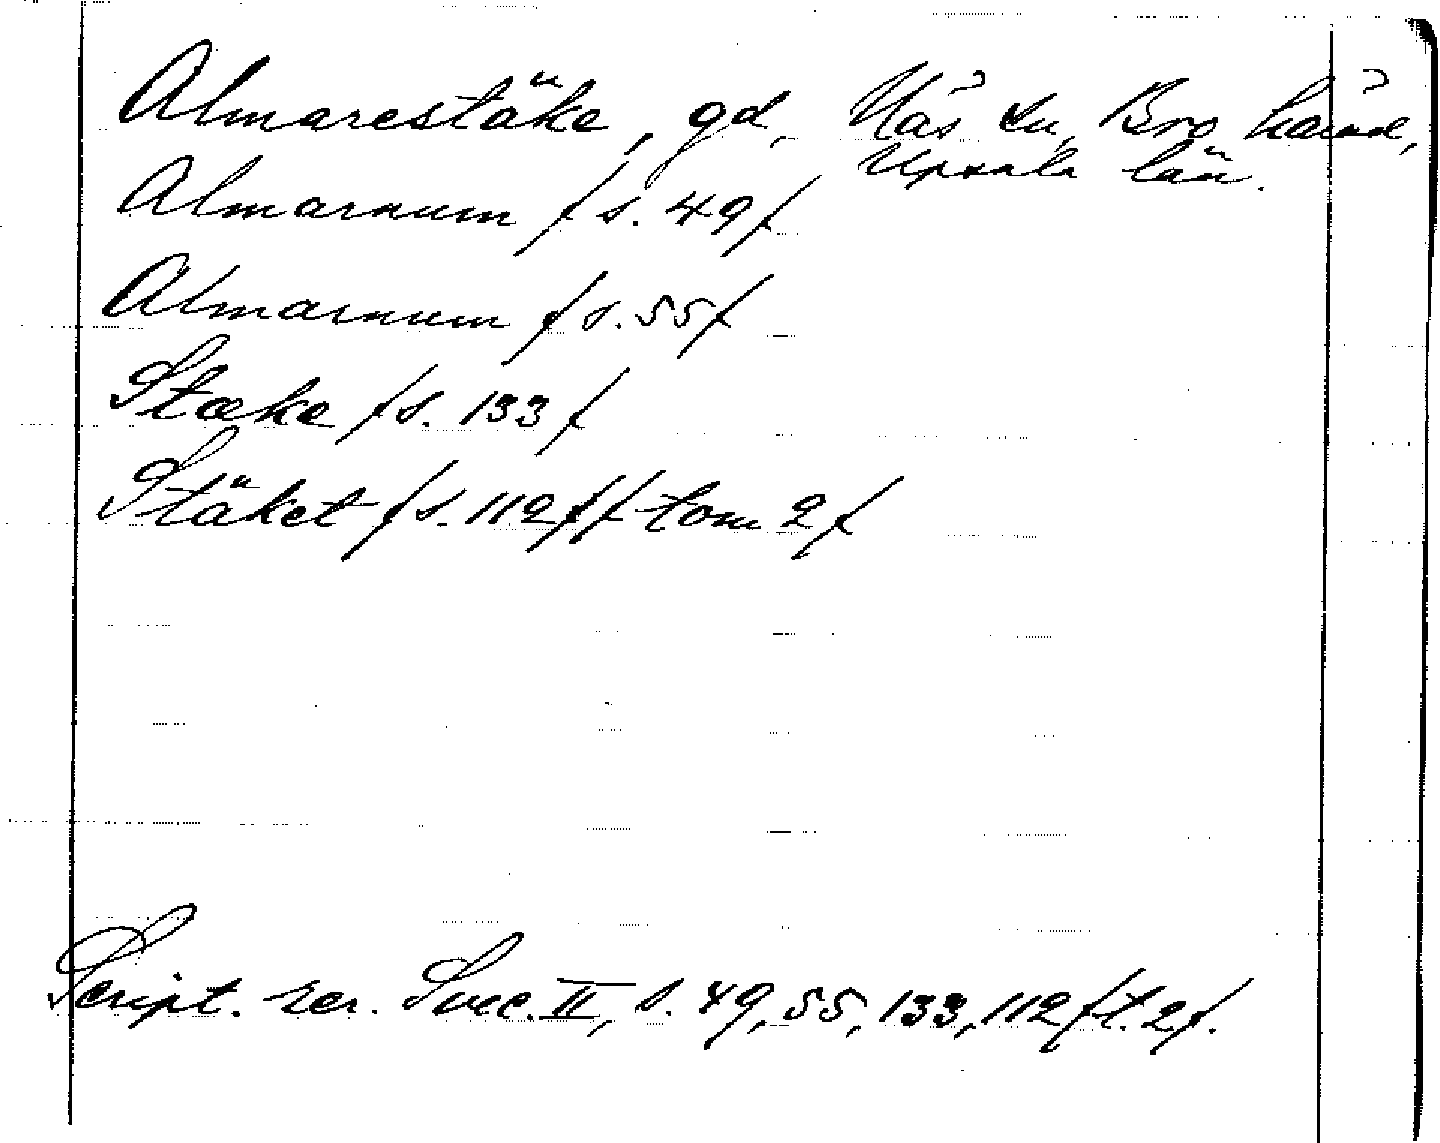 Almarestäke, gd, Nås sn, Bro härad,
Upsala län.
Almarnum /s. 49/
Almarnum /s. 55/
Stæke /s. 133/
Stäket /s. 112 // tom 2/
Script. rer. Svec. II, s. 49, 55, 133, 112 /t. 2/.